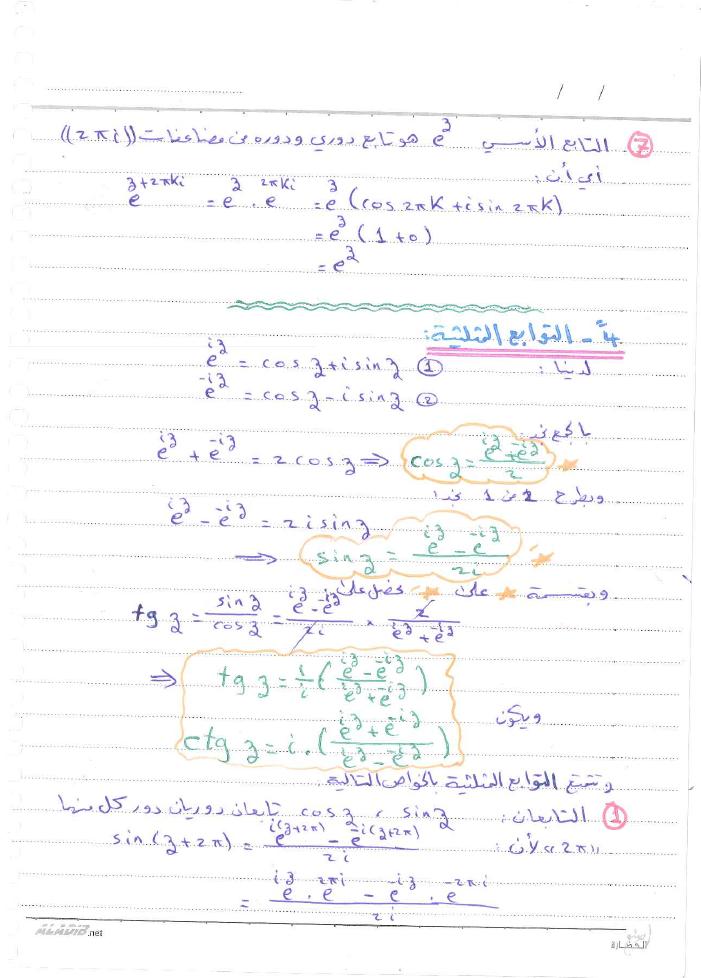 / /
⑦ التابع الأسي e^z هو تابع دوري ودوره من مضاعفات ((2πi))
أي أن:
e^{z+2πKi} = e^z . e^{2πKi} = e^z (cos 2πK + i sin 2πK)
= e^z (1+0)
= e^z
4ً - التوابع المثلثية:
لدينا: e^{iz} = cos z + i sin z ①
e^{-iz} = cos z - i sin z ②
بالجمع نجد:
e^{iz} + e^{-iz} = 2 cos z ⇒ cos z = (e^{iz} + e^{-iz})/2 ★
وبطرح 2 من 1 نجد:
e^{iz} - e^{-iz} = 2 i sin z
⇒ sin z = (e^{iz} - e^{-iz})/2i ★
وبقسمة ★ على ★ نحصل على:
tg z = sin z/cos z = (e^{iz} - e^{-iz})/2i × 2/(e^{iz} + e^{-iz})
⇒ tg z = 1/i ((e^{iz} - e^{-iz})/(e^{iz} + e^{-iz}))
ويكون ctg z = i . ((e^{iz} + e^{-iz})/(e^{iz} - e^{-iz}))
وتتمتع التوابع المثلثية بالخواص التالية.
① التابعان: sin z ، cos z تابعان دوريان دور كل منها
((2π)) لأن: sin(z+2π) = (e^{i(z+2π)} - e^{-i(z+2π)})/2i
= (e^{iz} . e^{2πi} - e^{-iz} . e^{-2πi})/2i
.net
الحضارة